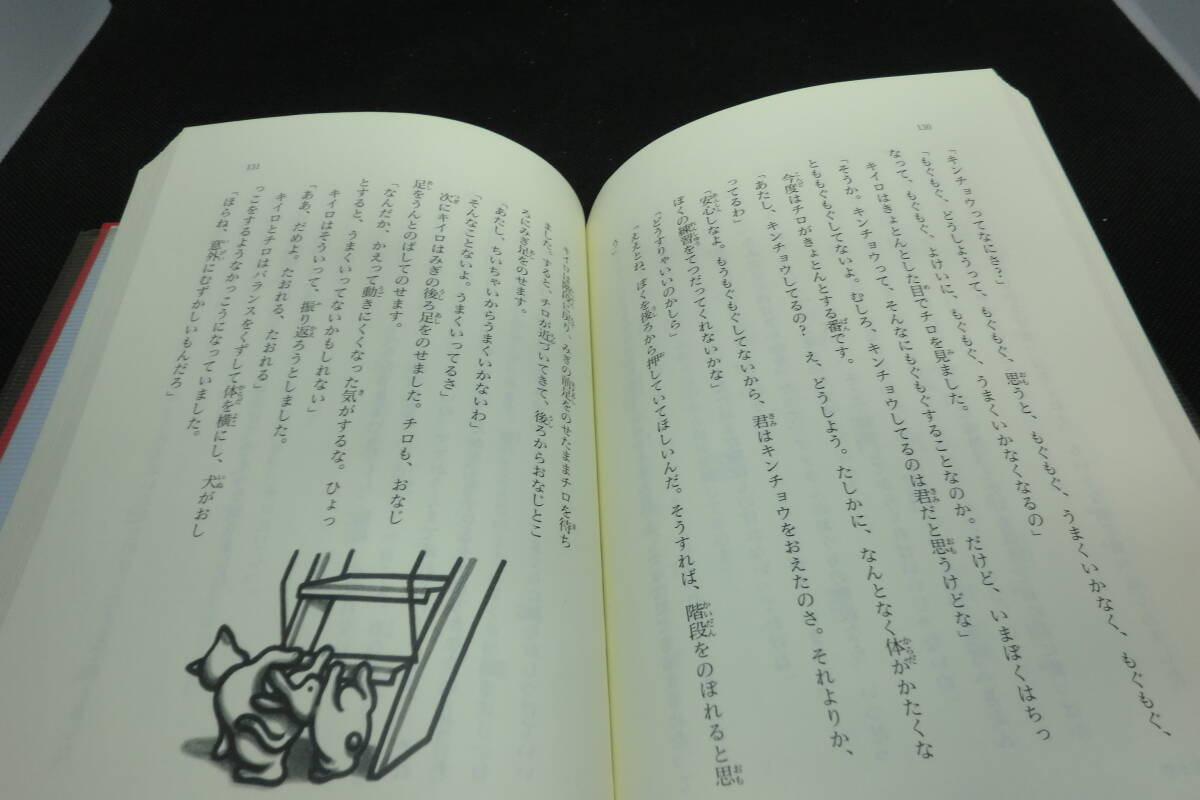 130
「キンチョウってなにさ？」
「もぐもぐ、どうしようって、もぐもぐ、思うと、もぐもぐ、うまくいかなく、もぐもぐ、
なって、もぐもぐ、よけいに、もぐもぐ、うまくいかなくなるの」
キイロはきょとんとした目でチロを見ました。
「そうか。キンチョウって、そんなにもぐもぐすることなのか。だけど、いまぼくはちっ
とももぐもぐしてないよ。むしろ、キンチョウしてるのは君だと思うけどな」
今度はチロがきょとんとする番です。
「あたし、キンチョウしてるの？ え、どうしよう。たしかに、なんとなく体がかたくな
ってるわ」
「安心しなよ。もうもぐもぐしてないから、君はキンチョウをおえたのさ。それよりか、
ぼくの練習をてつだってくれないかな」
「どうすりゃいいのかしら」
「ええとね、ぼくを後ろから押していてほしいんだ。そうすれば、階段をのぼれると思
131
キイロは階段に戻り、みぎの前足をのせたままチロを待ち
ました。すると、チロが近づいてきて、後ろからおなじとこ
ろにみぎ足をのせます。
「あたし、ちいちゃいからうまくいかないわ」
「そんなことないよ。うまくいってるさ」
次にキイロはみぎの後ろ足をのせました。チロも、おなじ
足をうんとのばしてのせます。
「なんだか、かえって動きにくくなった気がするな。ひょっ
とすると、うまくいってないかもしれない」
キイロはそういって、振り返ろうとしました。
「ああ、だめよ。たおれる、たおれる」
キイロとチロはバランスをくずして体を横にし、犬がおし
っこをするようなかっこうになっていました。
「ほらね、意外にむずかしいもんだろ」